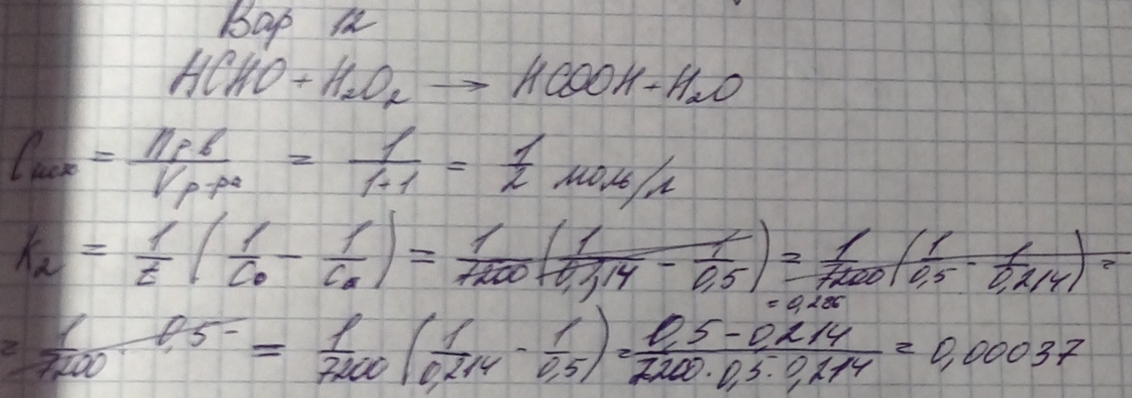 Вар 12
HCHO + H₂O₂ → HCOOH + H₂O
Cисх = n р.в / V р-ра = 1 / 1+1 = 1/2 моль/л
K₂ = 1/t (1/C₀ - 1/Cₐ) = 1/7200 (1/0,214 - 1/0,5) = 1/7200 (1/0,5 - 1/0,214) =
= 0,286
= 1/7200 · 0,5 - = 1/7200 (1/0,214 - 1/0,5) = 0,5 - 0,214 / 7200 · 0,5 · 0,214 = 0,00037